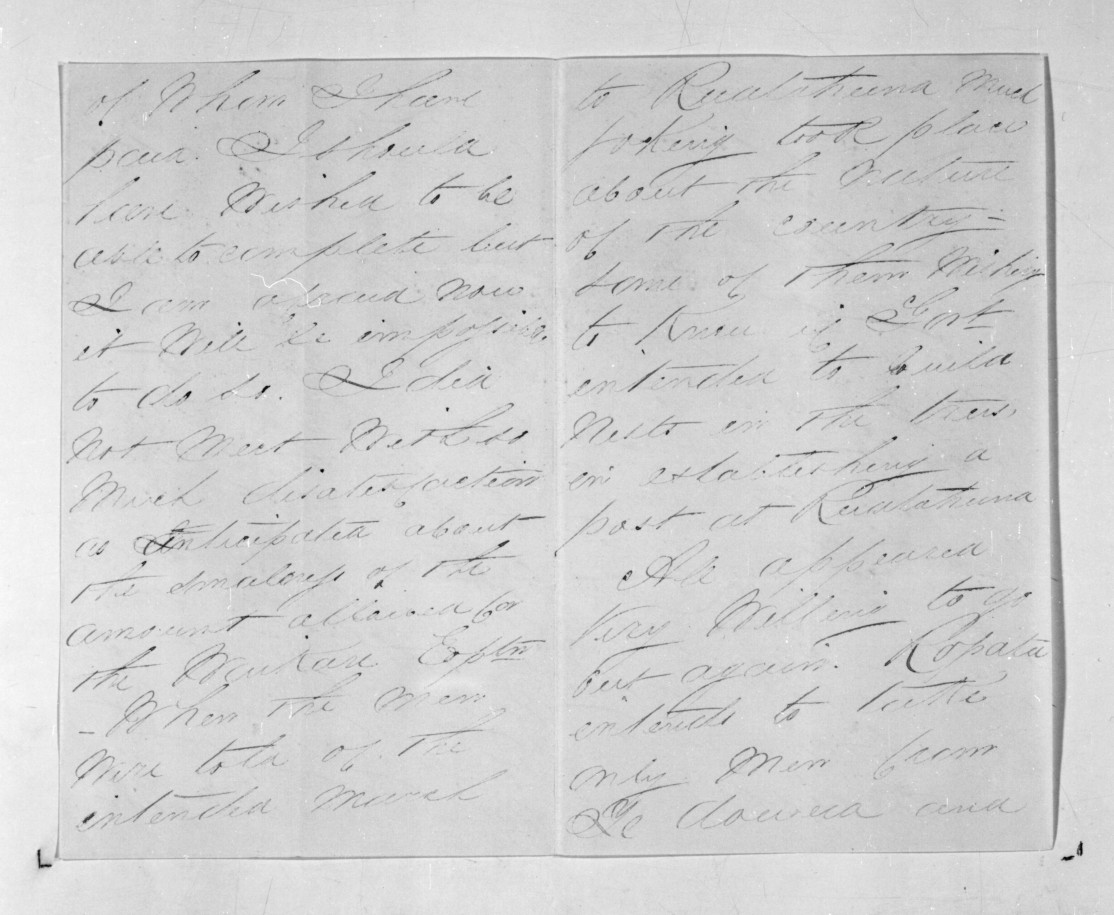 of Whom I have
paid. I should
have Wished to be
able to complete but
I am afraid now
it Will be impossible.
to do so. I did
not Meet With so
Much disatisfaction
as Anticipated about
the smalness of the
amount allowed for
the Waikare Exptn
- When the Men
Were told of the
intended March
to Ruatahuna Much
joking took place
about the Nature
of the country -
some of them Wishing
to Know if Govt
intended to build
Nests in the trees
in establishing a
post at Ruatahuna
All appeared
Very Willing to go
out again. Ropata
intends to take
only Men from
and